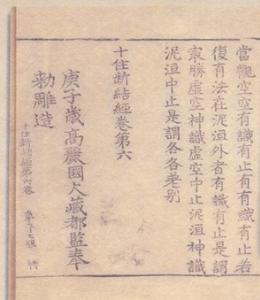 當觀空空有識有止有有識有止若
復有法在泥洹外者有識有止是謂
寂勝虛空神識虛空中止泥洹神識
泥洹中止是謂各各差別
十住斷結經卷第六
庚子歲高麗國大藏都監奉
勅雕造
十住斷結經第六卷